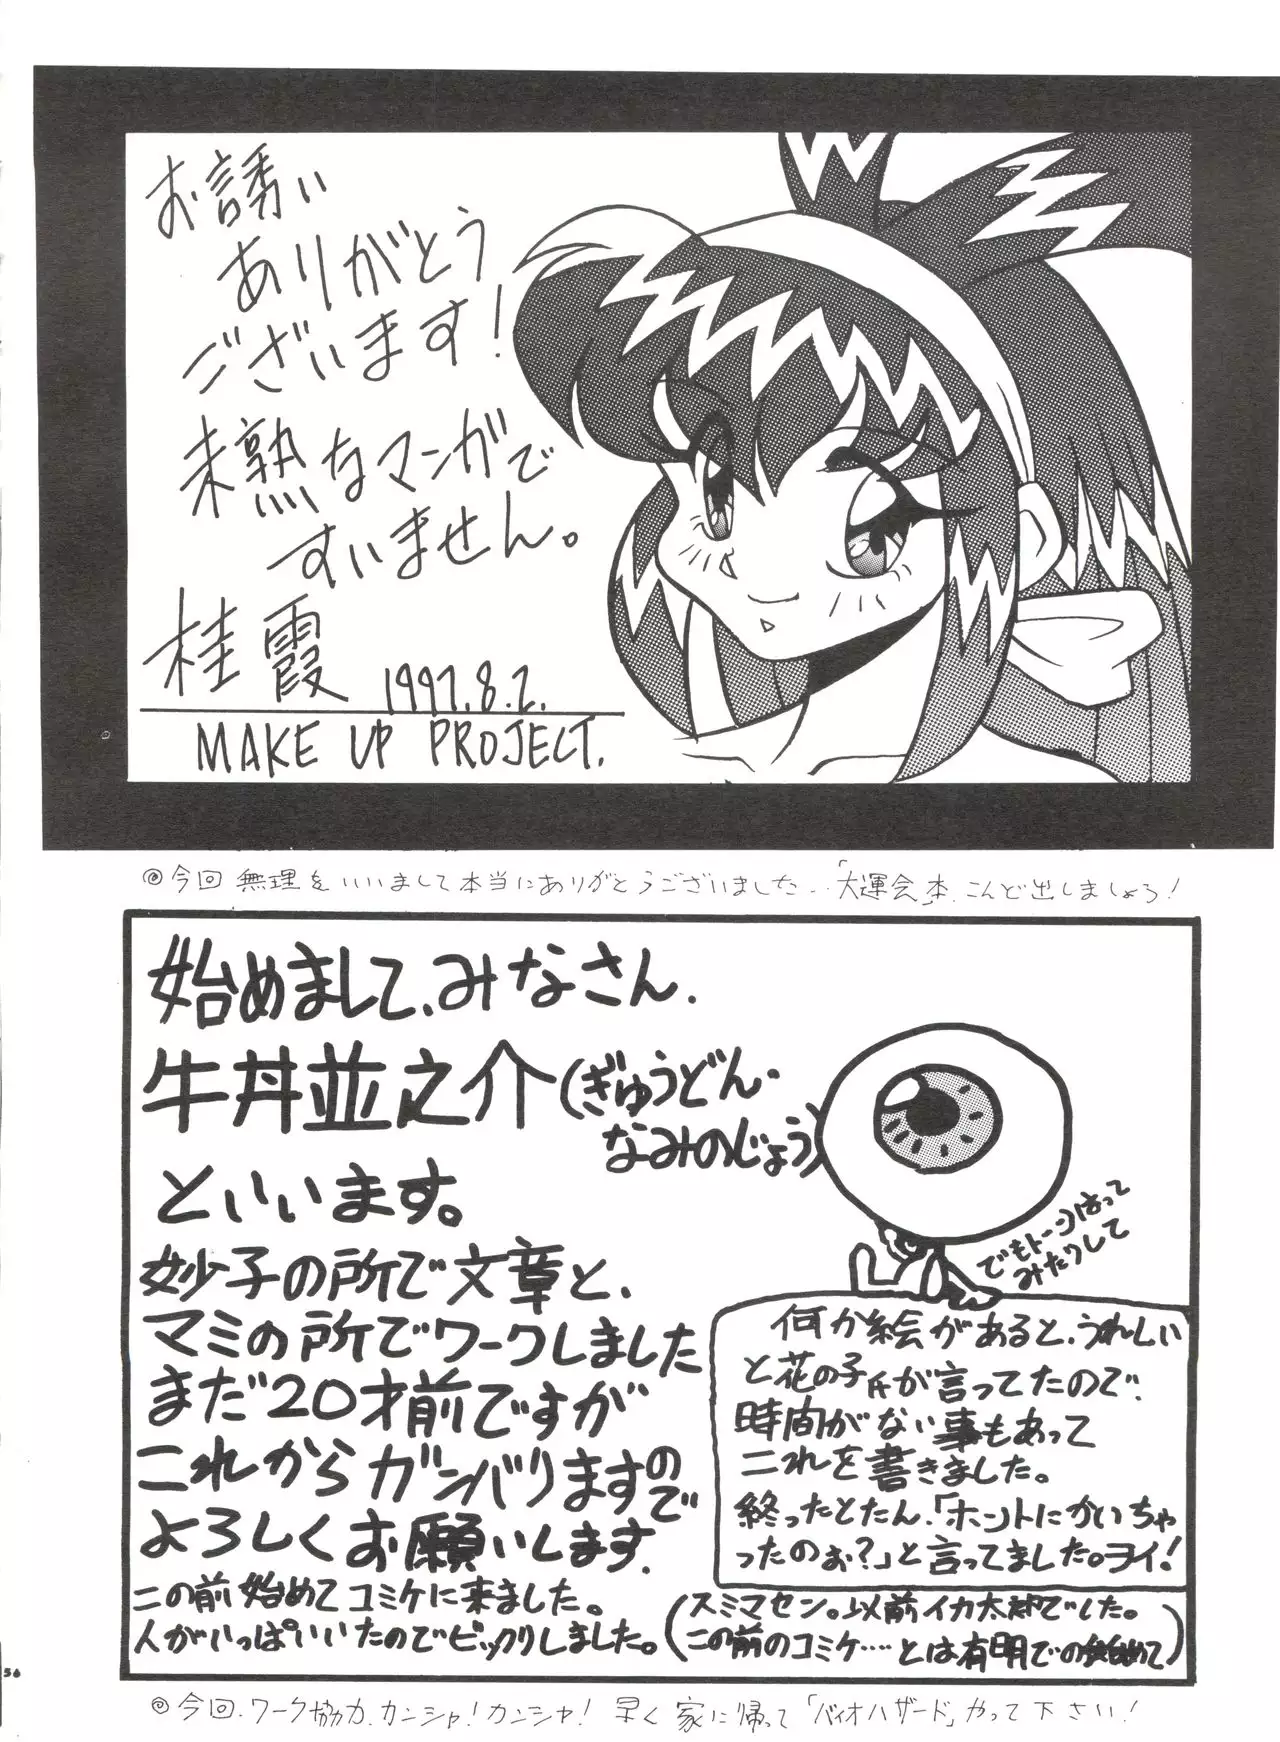 お誘い
ありがとう
ございます!
未熟なマンガで
すいません。
桂霞 1997.8.2.
MAKE UP PROJECT.
◎今回無理をいいまして本当にありがとうございました…「大運会」本、こんど出しましょう!
始めまして、みなさん.
牛丼並之介(ぎゅうどん・
なみのじょう)
といいます。
妙子の所で文章と、
マミの所でワークしました
まだ20才前ですが
これからガンバリますので
よろしくお願いします.
この前始めてコミケに来ました。
人がいっぱいいたのでビックリしました。
でもトーンはって
みたりして
何か絵があると、うれしい
と花の子氏が言ってたので、
時間がない事もあって
これを書きました。
終ったとたん、「ホントにかいちゃ
ったのぉ?」と言ってました。ヨイ!
(スミマセン。以前イカ太郎でした。
この前のコミケ‥‥とは有明での始めて)
56
◎今回、ワーク協力、カンシャ!カンシャ! 早く家に帰って「バイオハザード」やって下さい!